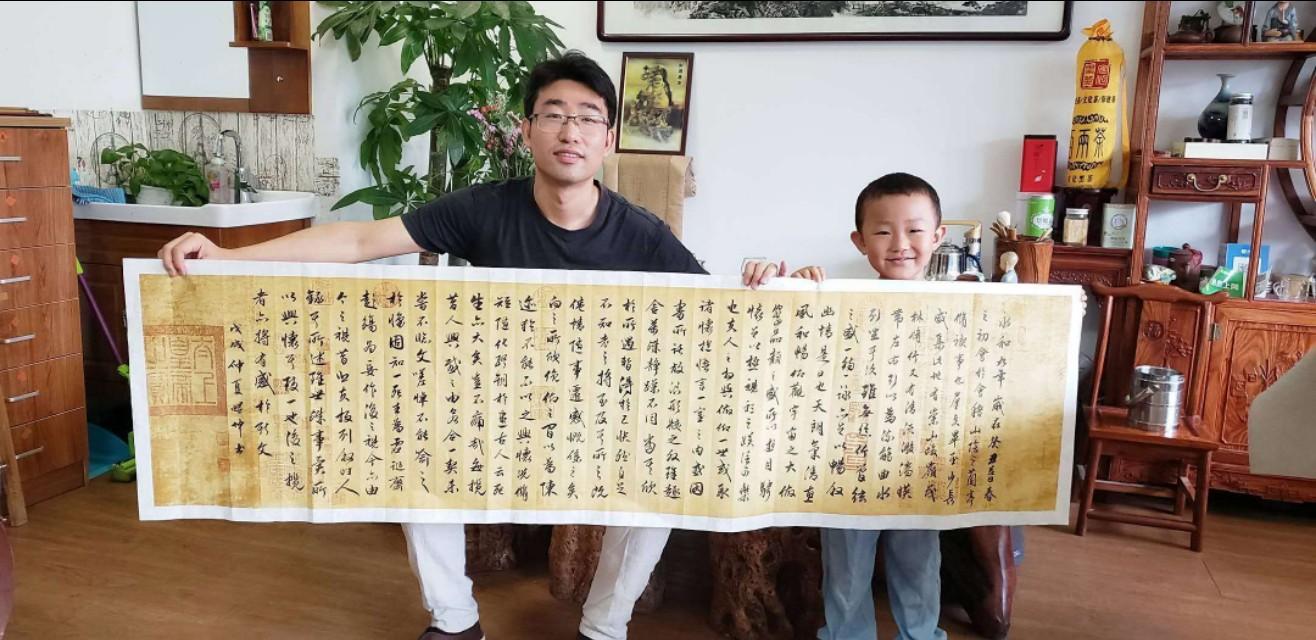 永和九年歲在癸丑暮春
之初會於會稽山陰之蘭亭
脩禊事也羣賢畢至少長
咸集此地有崇山峻嶺茂
林脩竹又有清流激湍暎
帶左右引以爲流觴曲水
列坐其次雖無絲竹管絃
之盛一觴一詠亦足以暢叙
幽情是日也天朗氣清惠
風和暢仰觀宇宙之大俯
察品類之盛所以遊目騁
懷足以極視聽之娛信可樂
也夫人之相與俯仰一世或取
諸懷抱悟言一室之內或因
寄所託放浪形骸之外雖趣
舍萬殊靜躁不同當其欣
於所遇暫得於己快然自足
不知老之將至及其所之既
倦情隨事遷感慨係之矣
向之所欣俛仰之間以爲陳
迹猶不能不以之興懷況脩
短隨化終期於盡古人云死
生亦大矣豈不痛哉每攬
昔人興感之由若合一契未
嘗不臨文嗟悼不能喻之
於懷固知一死生爲虛誕齊
彭殤爲妄作後之視今亦由
今之視昔悲夫故列叙時人
錄其所述雖世殊事異所
以興懷其致一也後之攬
者亦將有感於斯文
戊戌仲夏世坤書
兩茶